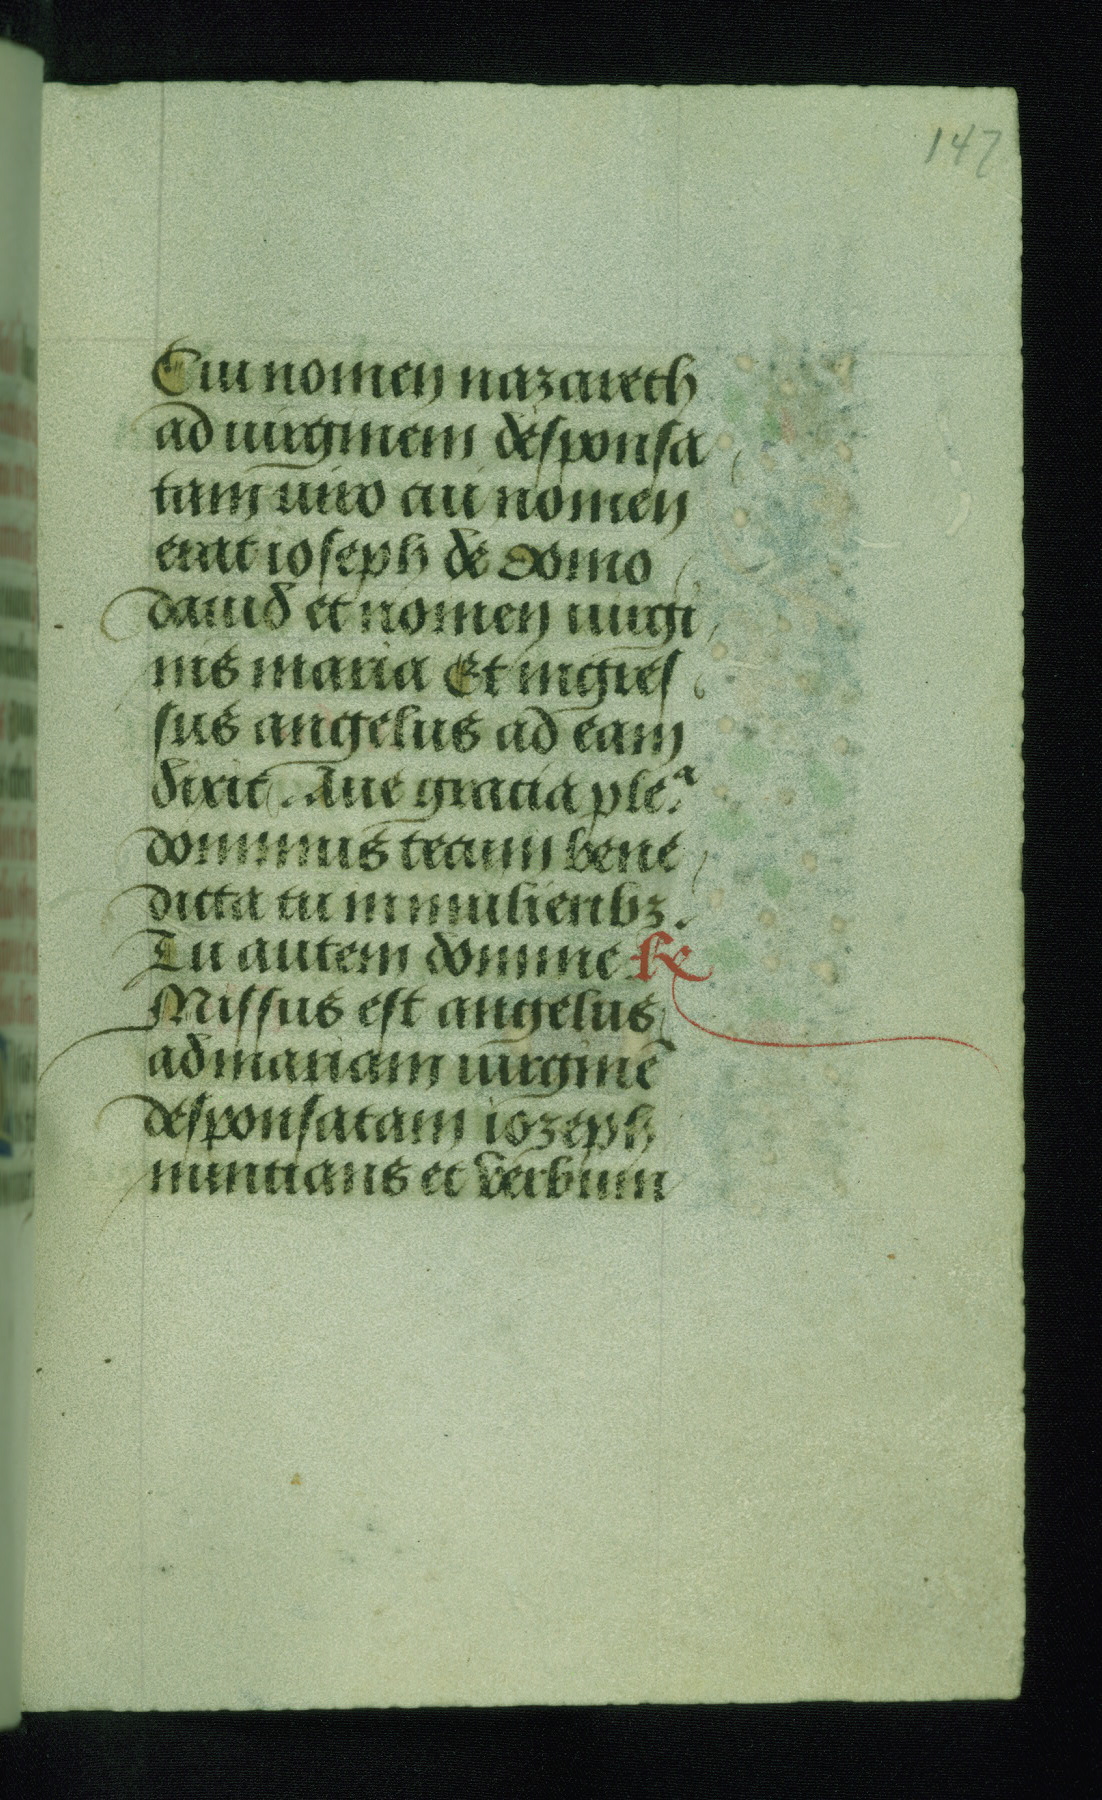 147
Cui nomen nazareth
ad uirginem desponsa
tam uiro cui nomen
erat ioseph de domo
dauid et nomen uirgi
nis maria Et ingres
sus angelus ad eam
dixit. Aue gracia ple.ª
dominus tecum bene
dicta tu in mulieribꝫ.
Tu autem domine ℟
Missus est angelus
ad mariam uirginē
desponsatam iozeph
nuntians et verbum